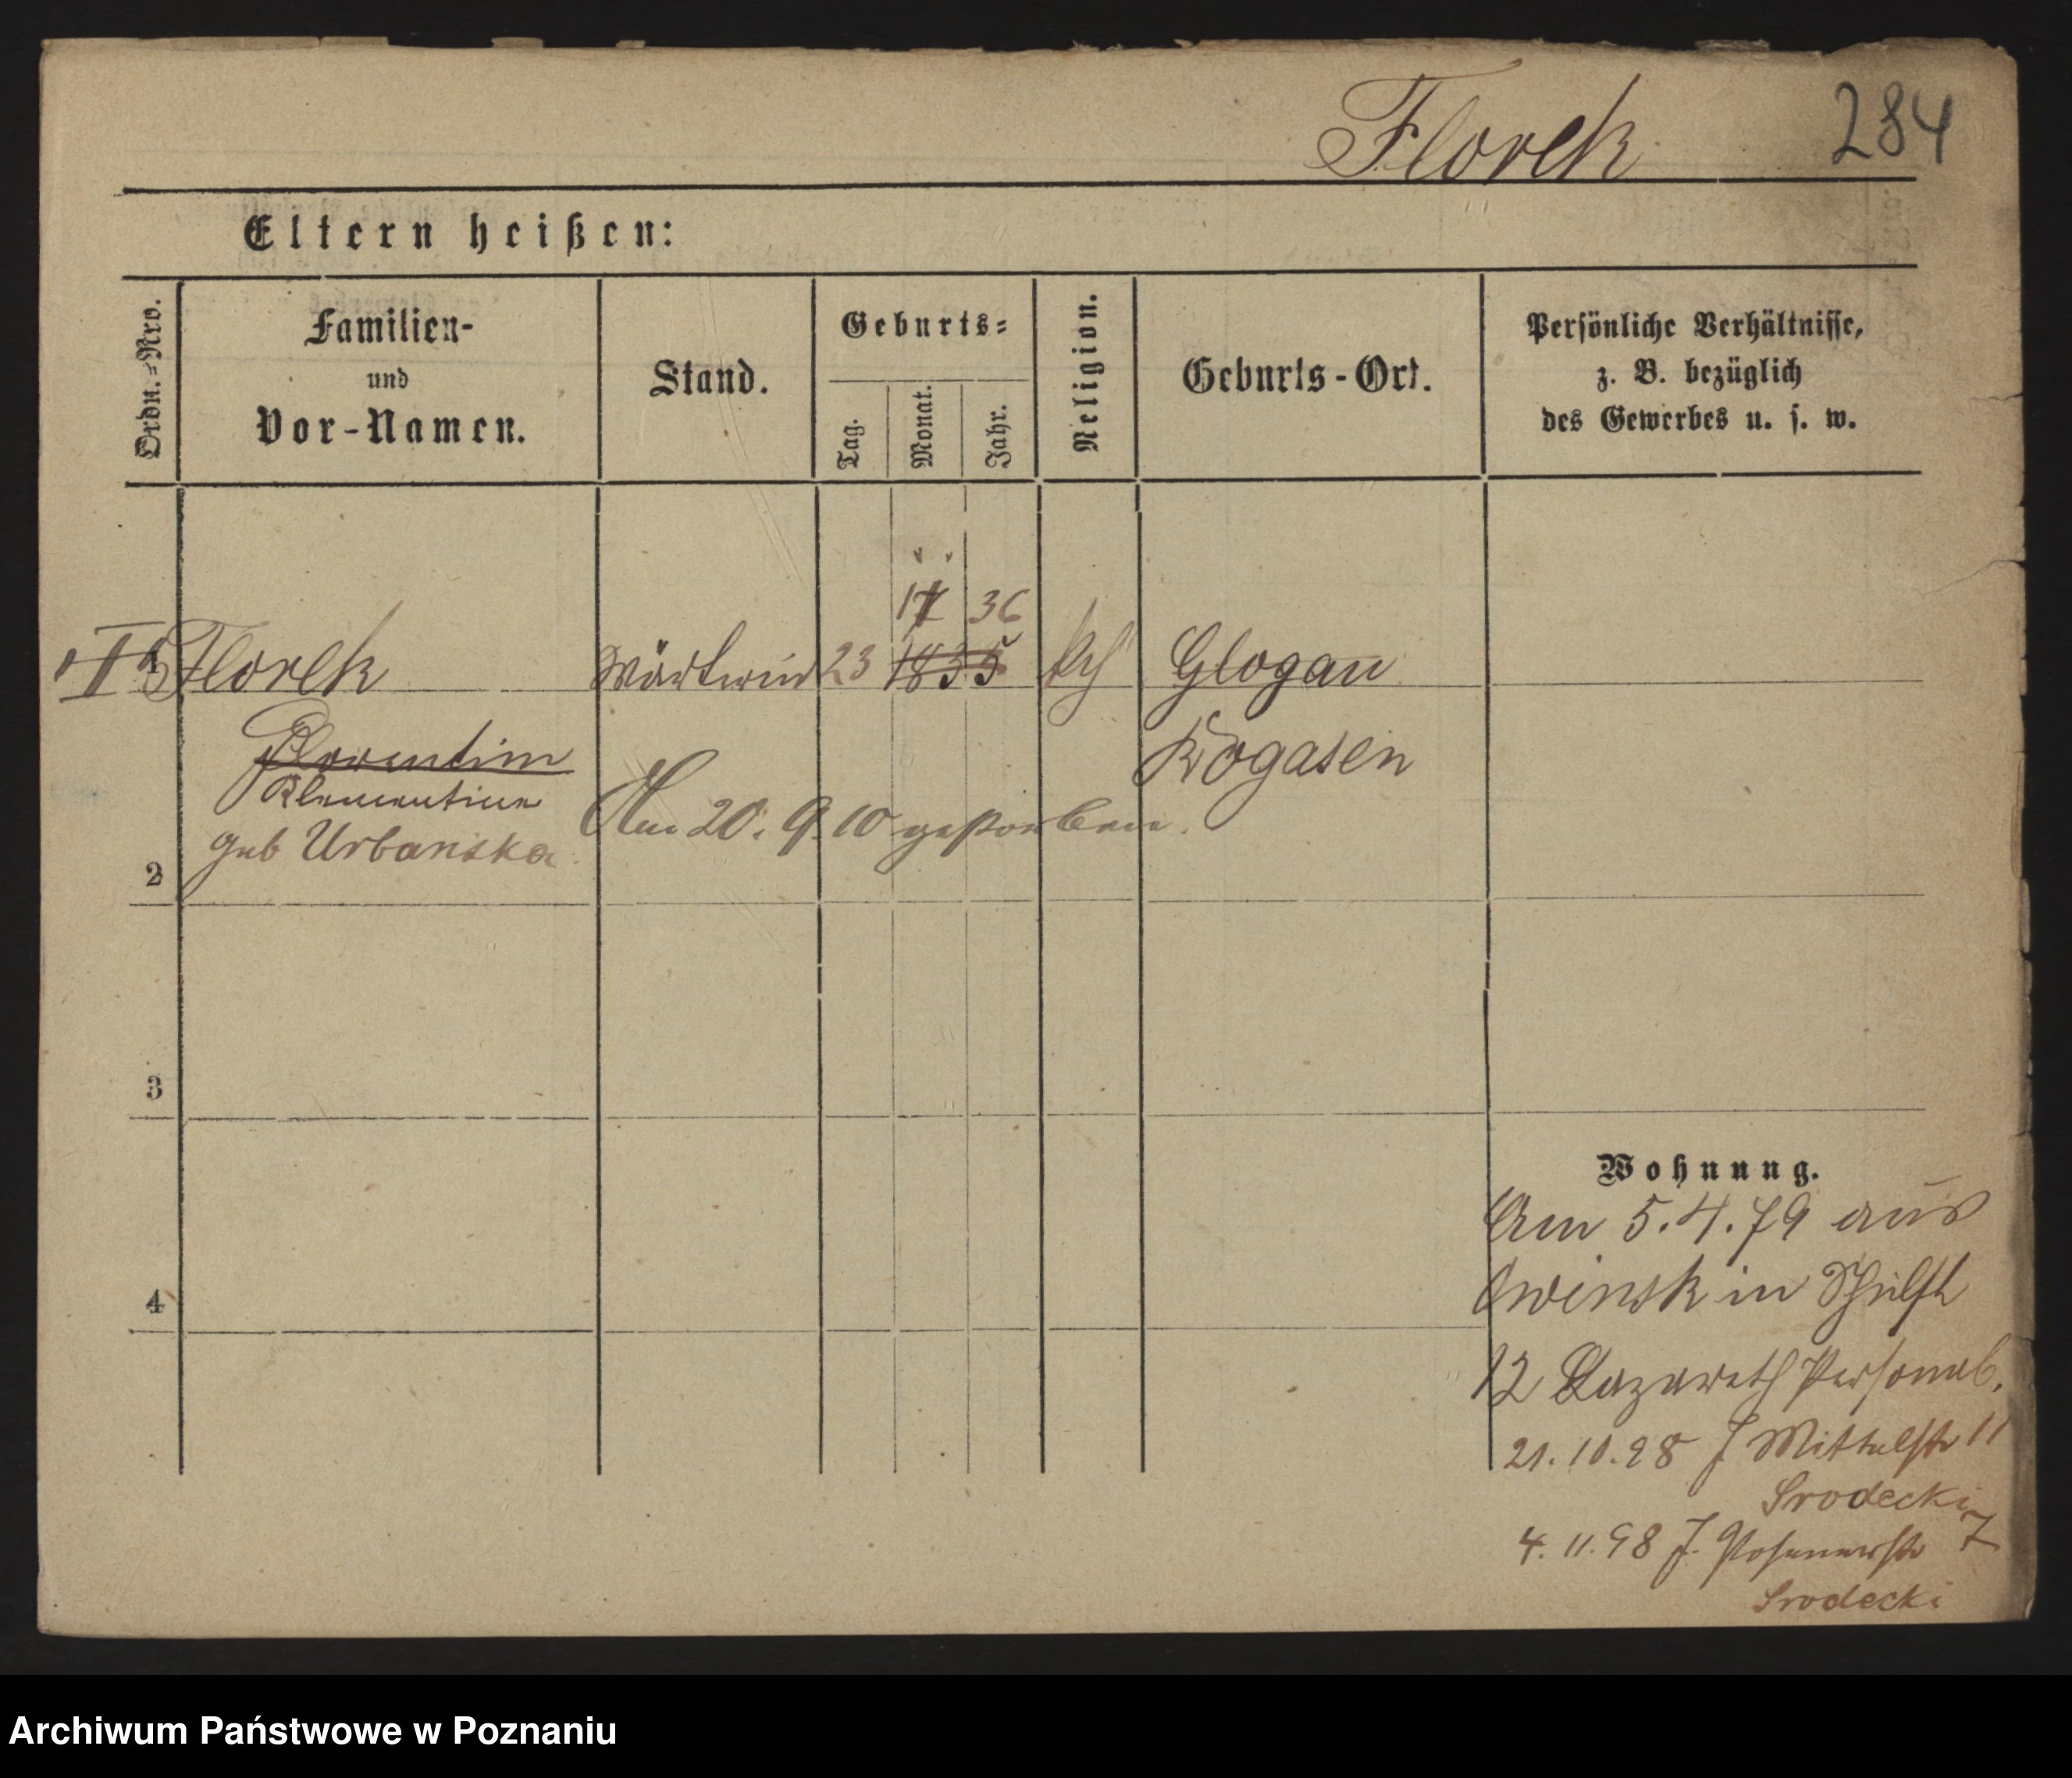 Florek 284
Eltern heißen:
Ordn.=Nro.
Familien-
und
Vor-Namen.
Stand.
Geburts=
Tag.
Monat.
Jahr.
Religion.
Geburts-Ort.
Persönliche Verhältnisse,
z. B. bezüglich
des Gewerbes u. s. w.
36
Florek Wärterin 23 1835 kth Glogau
Florentine Rogasen
Klementine
geb Urbanska Am 20. 9. 10 gestorben.
2
3
4
Wohnung.
Am 5.4.79 aus
Owinsk in Schulstr
12 Lazareth Personal.
21.10.98 J Mittelstr 11
Srodecki
4.11.98 J. Posenerstr 7
Srodecki
Archiwum Państwowe w Poznaniu